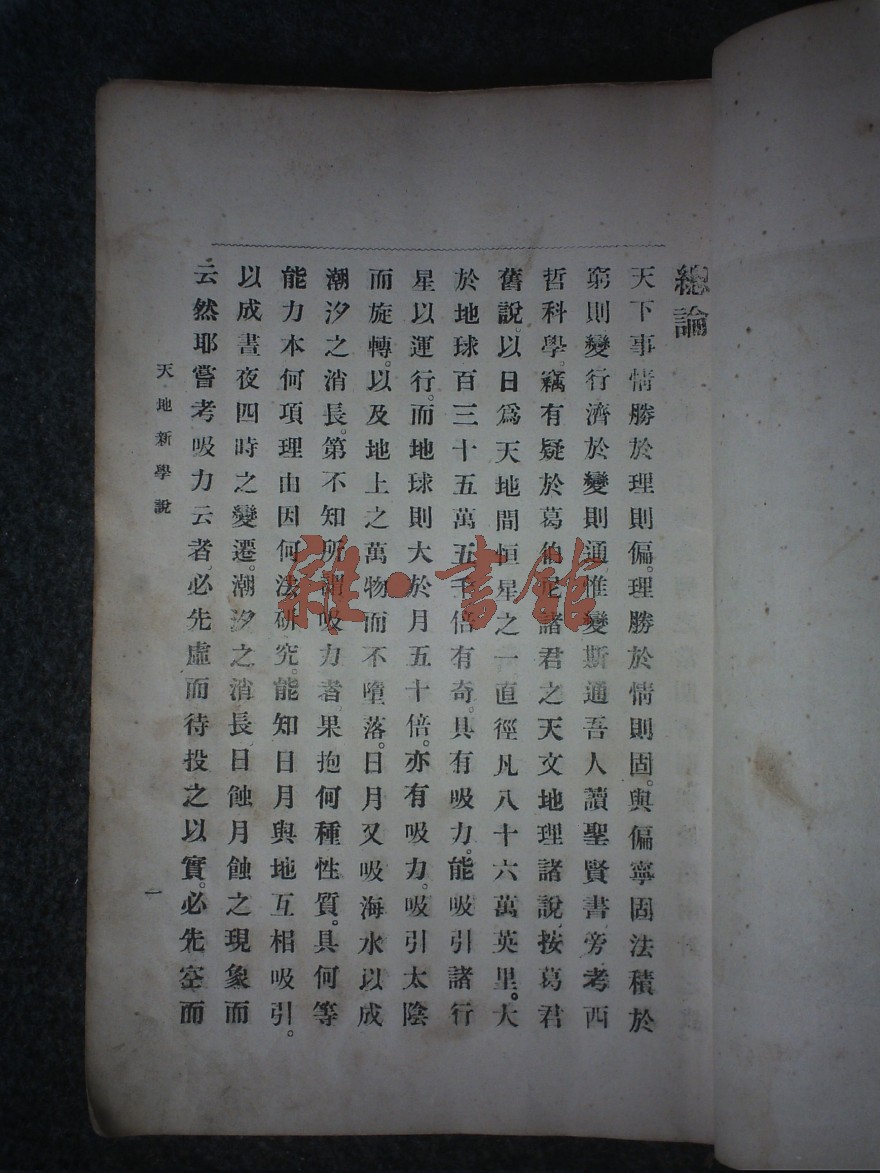 總論
天下事情勝於理則偏。理勝於情則固。與偏寧固法積於
窮則變行濟於變則通惟變斯通吾人讀聖賢書旁考西
哲科學竊有疑於葛伯尼諸君之天文地理諸說按葛君
舊說。以日爲天地間恒星之一直徑凡八十六萬英里。大
於地球百三十五萬五千倍有奇。具有吸力。能吸引諸行
星以運行。而地球則大於月五十倍。亦有吸力。吸引太陰
而旋轉。以及地上之萬物而不墮落。日月又吸海水以成
潮汐之消長。第不知所謂吸力者。果抱何種性質。具何等
能力本何項理由因何法研究。能知日月與地互相吸引。
以成晝夜四時之變遷。潮汐之消長、日蝕月蝕之現象而
云然耶嘗考吸力云者、必先虛而待投之以實。必先空而
天地新學說
一
雜·書館